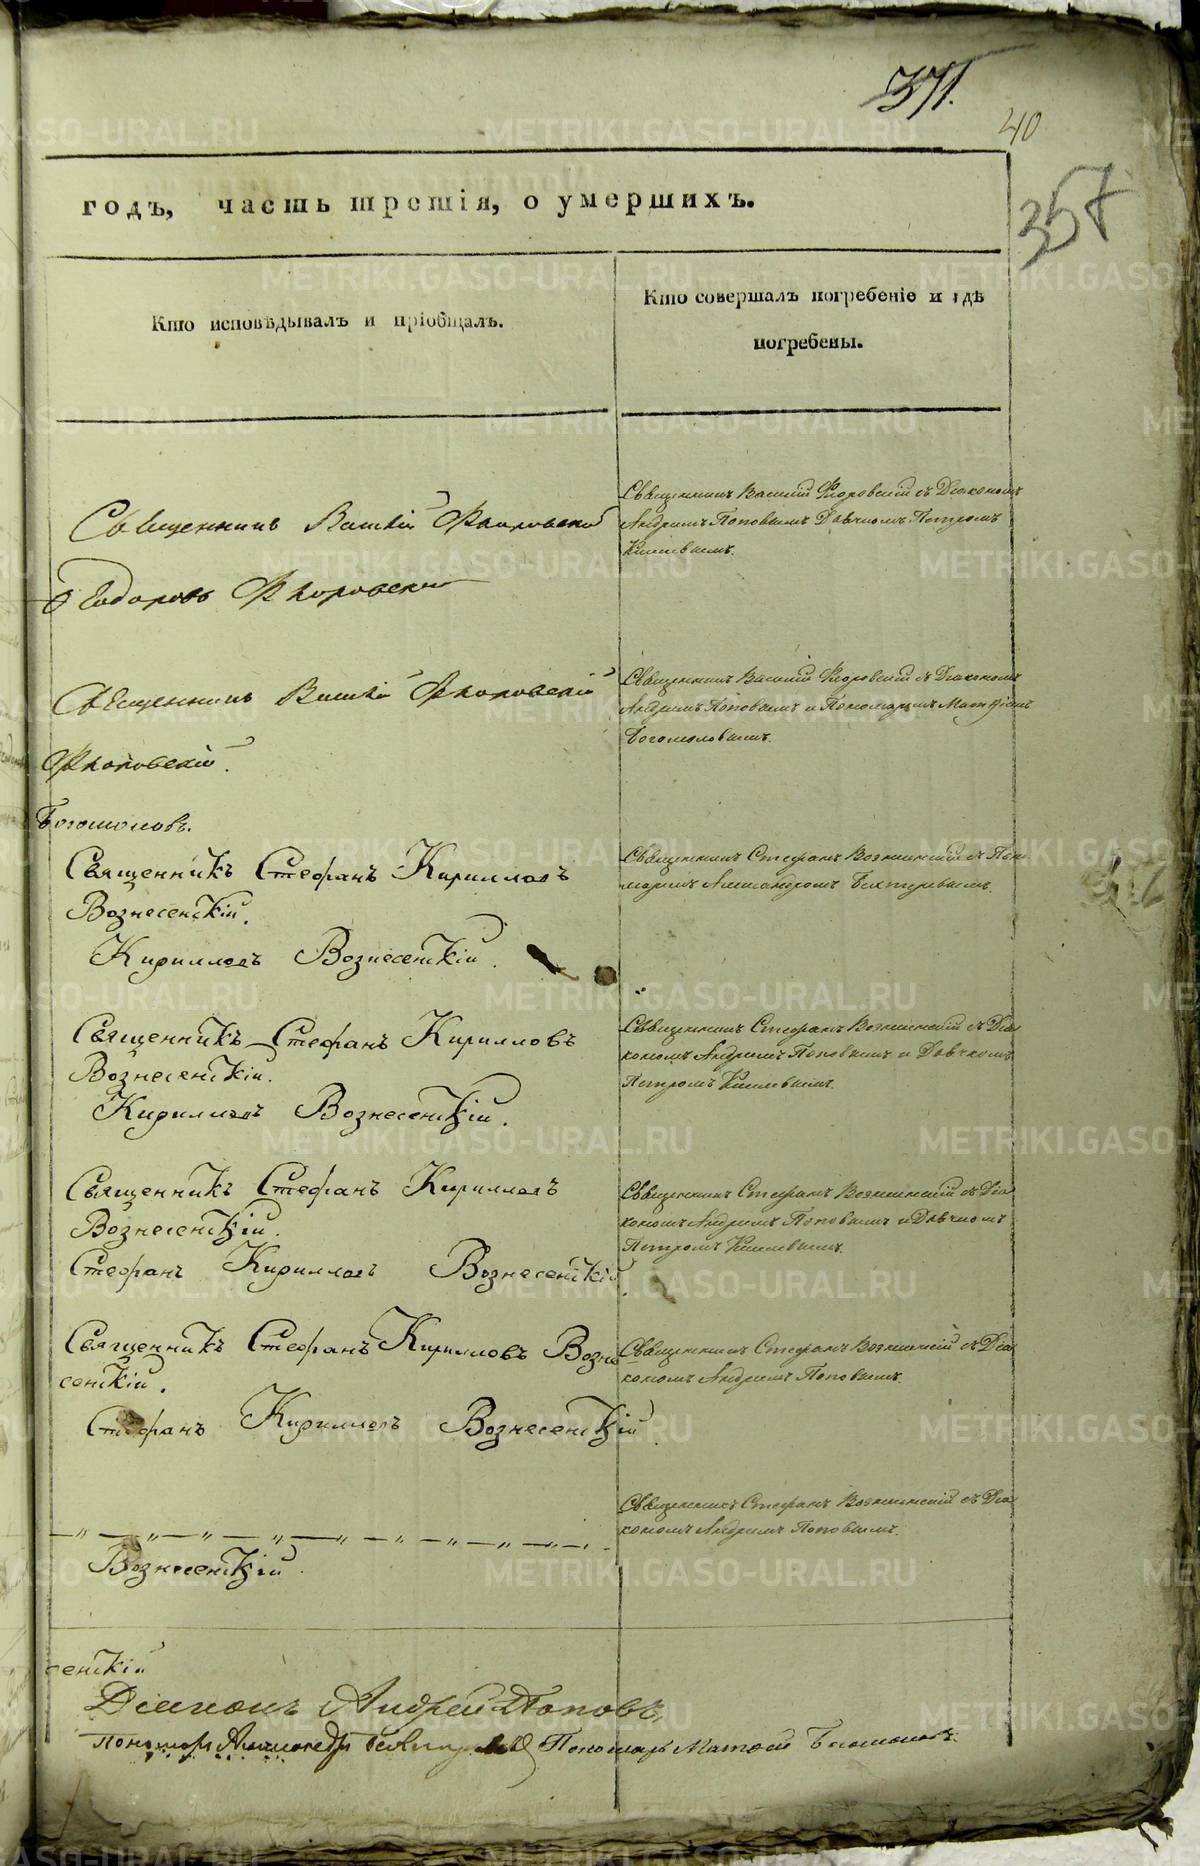 371.
40
357
годъ, часть третія, о умершихъ.
Кто исповѣдывалъ и пріобщалъ.
Кто совершалъ погребеніе и гдѣ
погребены.
Священникъ Василій Флоровскій
Ѳеодоровъ Флоровскій
Священникъ Василій Флоровскій съ Діакономъ
Андреемъ Поповымъ Дьячкомъ Петромъ
Священникъ Василій Флоровскій
Флоровскій.
Богомоловъ.
Священникъ Василій Флоровскій съ Діакономъ
Андреемъ Поповымъ и Пономаремъ Матѳіемъ
Богомоловымъ.
Священникъ Стефанъ Кирилловъ
Вознесенскій.
Кирилловъ Вознесенскій.
Священникъ Стефанъ Вознесенскій съ Поно
маремъ Александромъ
Священникъ Стефанъ Кирилловъ
Вознесенскій.
Кирилловъ Вознесенскій.
Священникъ Стефанъ Вознесенскій съ Діа
кономъ Андреемъ Поповымъ и Дьячкомъ
Петромъ
Священникъ Стефанъ Кирилловъ
Вознесенскій.
Стефанъ Кирилловъ Вознесенскій.
Священникъ Стефанъ Вознесенскій съ Діа
кономъ Андреемъ Поповымъ и Дьячкомъ
Петромъ
Священникъ Стефанъ Кирилловъ Возне
сенскій.
Стефанъ Кирилловъ Вознесенскій
Священникъ Стефанъ Вознесенскій съ Діа
кономъ Андреемъ Поповымъ.
— „ — „ — „ — „ — „ — „ — „ — „ — „ —
Вознесенскій
Священникъ Стефанъ Вознесенскій съ Діа
кономъ Андреемъ Поповымъ.
сенскій
Діаконъ Андрей Поповъ,
Пономарь Александръ Пономарь Матѳей Богомоловъ.
METRIKI.GASO-URAL.RU